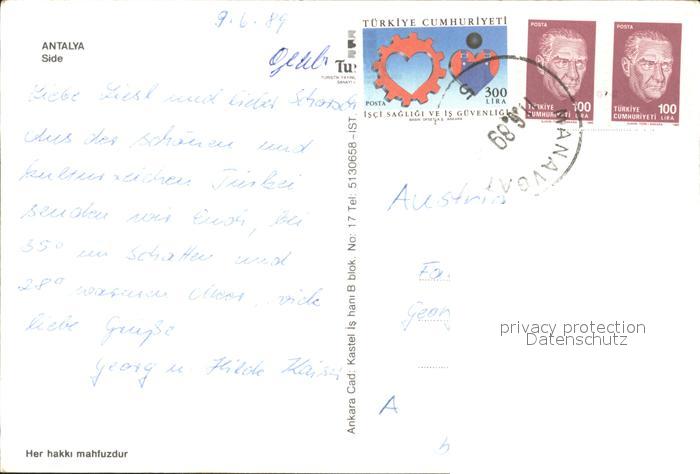 9.6.89
ANTALYA
Side
Liebe Liesl und lieber
Aus der schönen und
kulturreichen Türkei
senden wir Euch, bei
35° im Schatten und
28° warmen Meer, viele
liebe Grüße
Georg u. Hilde Kaiser
Her hakkı mahfuzdur
Ankara Cad: Kastel İş hanı B blok. No: 17 Tel: 5130658 -İST.
TÜRKİYE CUMHURİYETİ
300
LİRA
POSTA
İŞÇİ SAĞLIĞI VE İŞ GÜVENLİĞİ
POSTA
100
TÜRKİYE
CUMHURİYETİ LİRA
POSTA
100
TÜRKİYE
CUMHURİYETİ LİRA
MANAVGAT
Austria
Fa.
Georg
A
privacy protection
Datenschutz